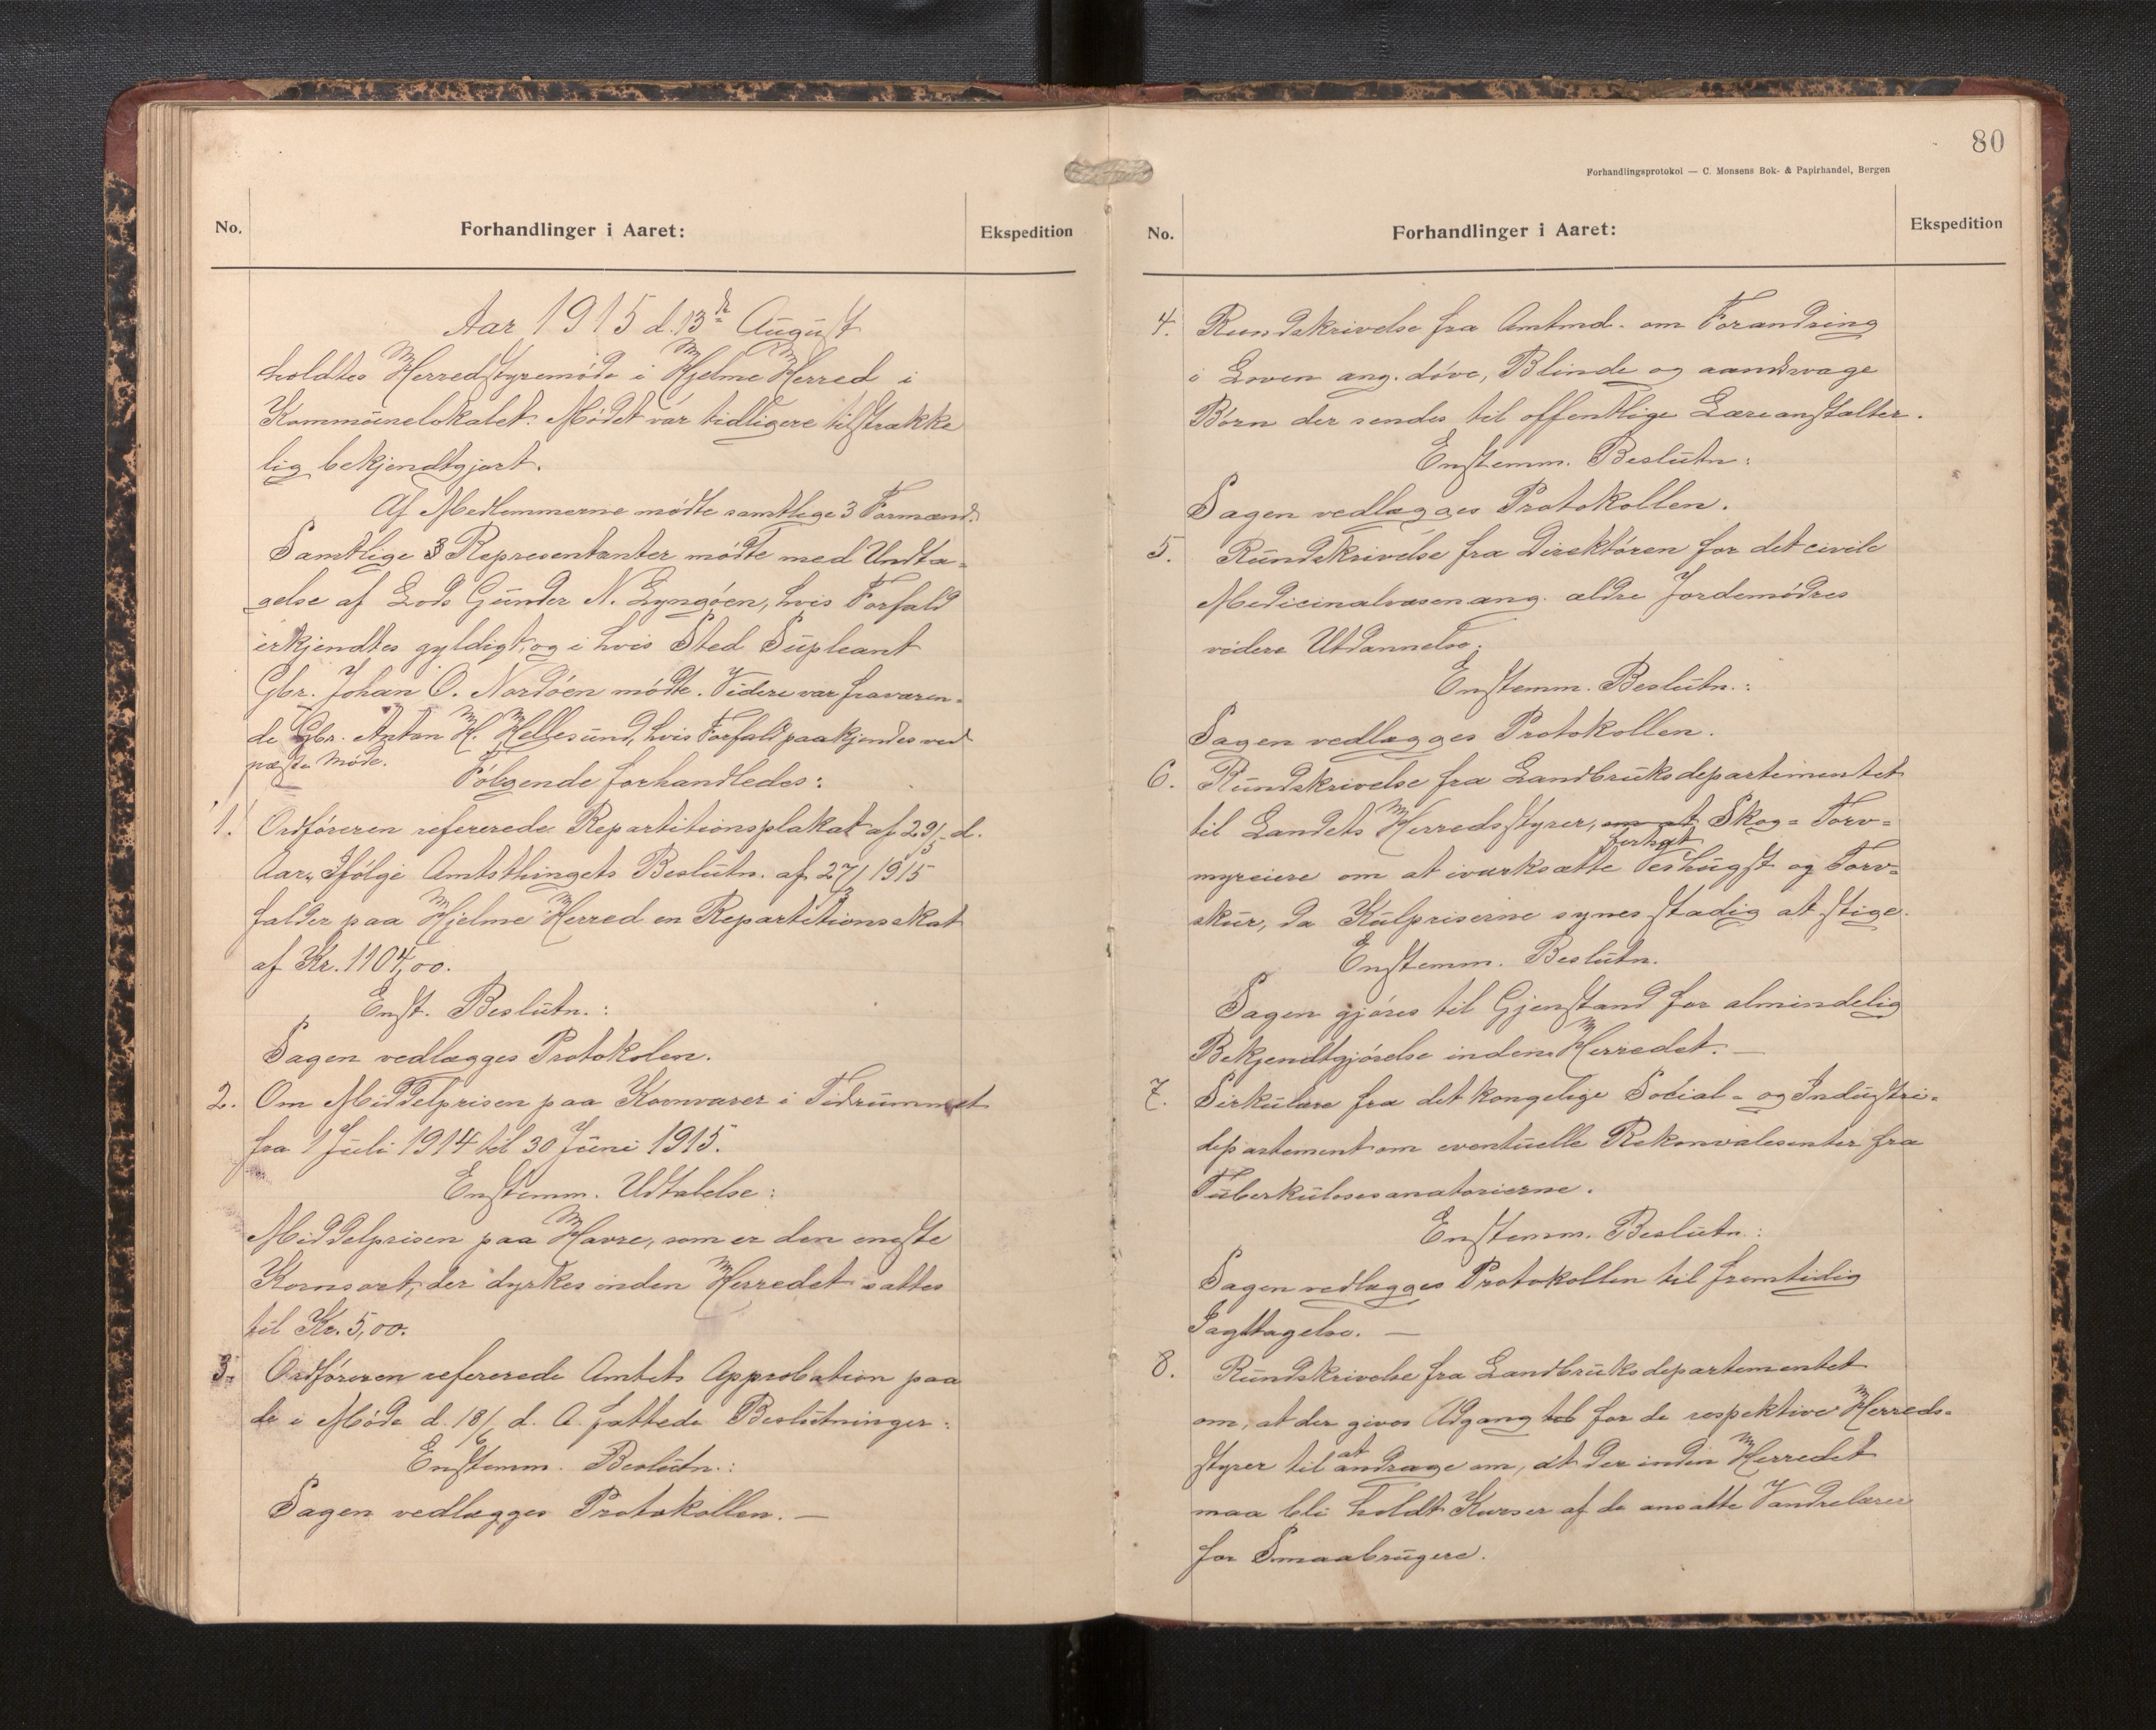 No.
Forhandlinger i Aaret:
Ekspedition
Aar 1915 d. 13de August
holdtes Herredstyremøde i Hjelme Herred i
Kommunelokalet. Mødet var tidligere tilstrække
lig bekjendtgjort.
Af Medlemmerne mødte samtlige 3 Formænd.
Samtlige Representanter mødte med Undta-
gelse af Lods Gunder N. Lyngøen, hvis Forfald
erkjendtes gyldigt, og i hvis Sted Supleant
Gbr. Johan O. Nordøen mødte. Videre var fraværen-
de Gbr. Anton H. Hellesund, hvis Forfald paakjendes ved
næste Møde.
Følgende forhandledes:
1. Ordføreren refererede Repartitionsplakat af 29/5 d.
Aar. Ifølge Amtsthingets Beslutn. af 27/3 1915
falder paa Hjelme Herred en Repartitionsskat
af Kr. 1104,00.
Enst. Beslutn.:
Sagen vedlægges Protokolen.
2. Om Middelprisen paa Kornvarer i Tidrummet
fra 1 Juli 1914 til 30 Juni 1915.
Enstemm. Udtalelse:
Middelprisen paa Havre, som er den eneste
Kornsort, der dyrkes inden Herredet sættes
til Kr. 5,00.
3. Ordføreren refererede Amtets Approbation paa
de i Møde d. 18/6 d. A. fattede Beslutninger:
Enstemm. Beslutn.:
Sagen vedlægges Protokollen. —
80
Forhandlingsprotokol — C. Monsens Bok- & Papirhandel, Bergen
No.
Forhandlinger i Aaret:
Ekspedition
4. Rundskrivelse fra Amtmd. om Forandring
i Loven ang. døve, Blinde og aandsvage
Børn der sendes til offentlige Læreanstalter.
Enstemm. Beslutn:
Sagen vedlægges Protokollen.
5. Rundskrivelse fra Direktøren for det civile
Medicinalvæsen ang. ældre Jordemødres
videre Utdannelse.
Enstemm. Beslutn.:
Sagen vedlægges Protokollen.
6. Rundskrivelse fra Landbruksdepartementet
til Landets Herredsstyrer, om at Skog- Torv-
fortsat
myreiere om at iværksætte Vedhugst og Torv-
skur, da Kulpriserne synes stadig at stige.
Enstemm. Beslutn.
Sagen gjøres til Gjenstand for almindelig
Bekjendtgjørelse inden Herredet. —
7. Sirkulære fra det kongelige Social- og Industri-
departement om eventuelle Rekonvalesenter fra
Tuberkulosesanatorierne.
Enstemm. Beslutn:
Sagen vedlægges Protokollen til fremtidig
Iagttagelse. —
8. Rundskrivelse fra Landbruksdepartementet
om, at der gives Adgang til for de respektive Herreds-
styrer til at andrage om, at der inden Herredet
maa bli holdt Kurser af de ansatte Vandrelærer
for Smaabrugere.